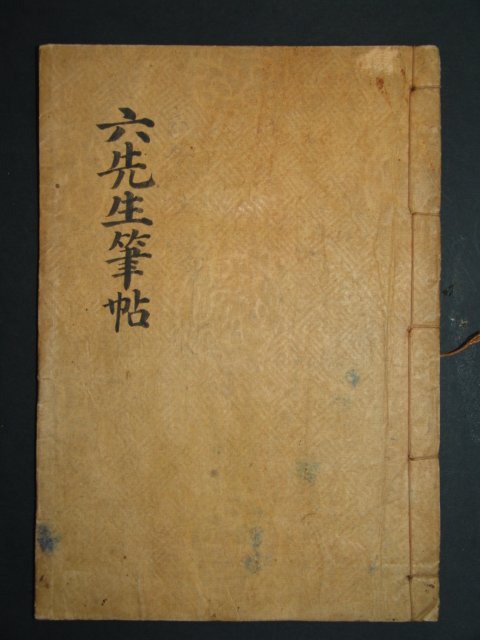 六先生筆帖